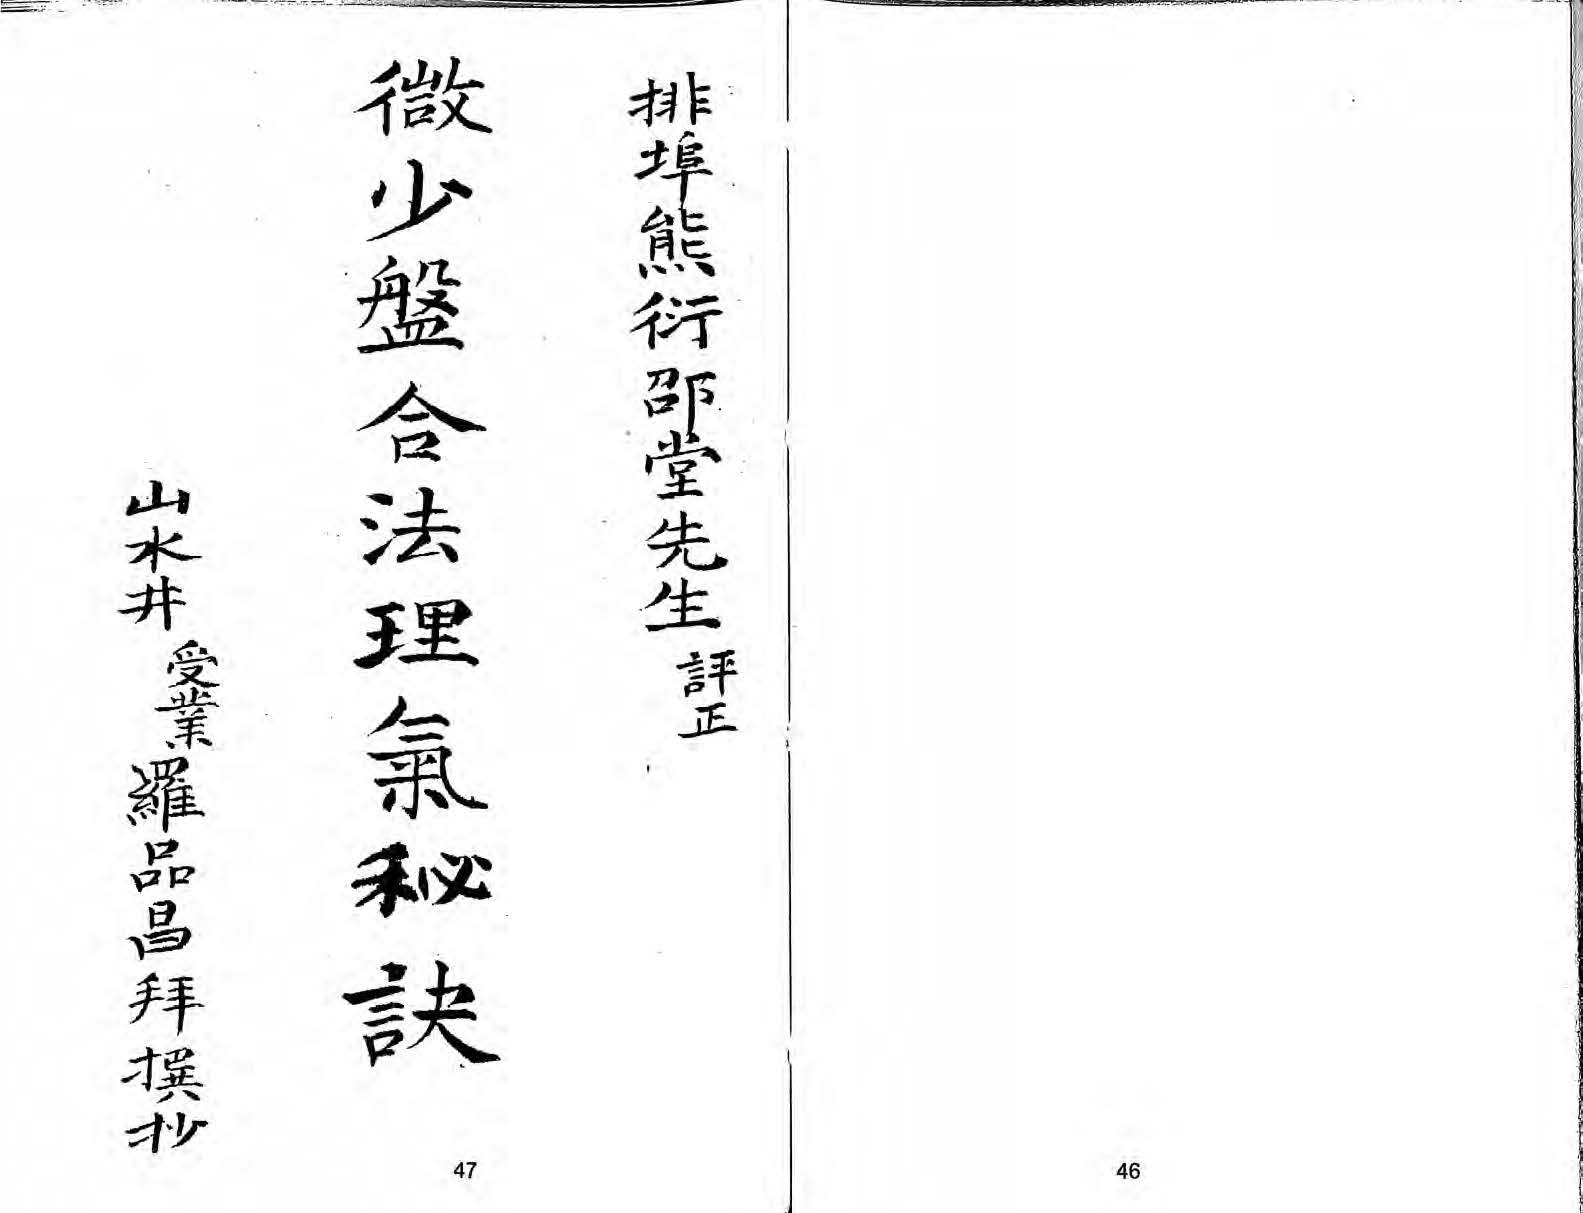 排埠熊衍邵堂先生 評正
微少盤合法理氣秘訣
山水井 受業 羅品昌拜撰抄
47
46